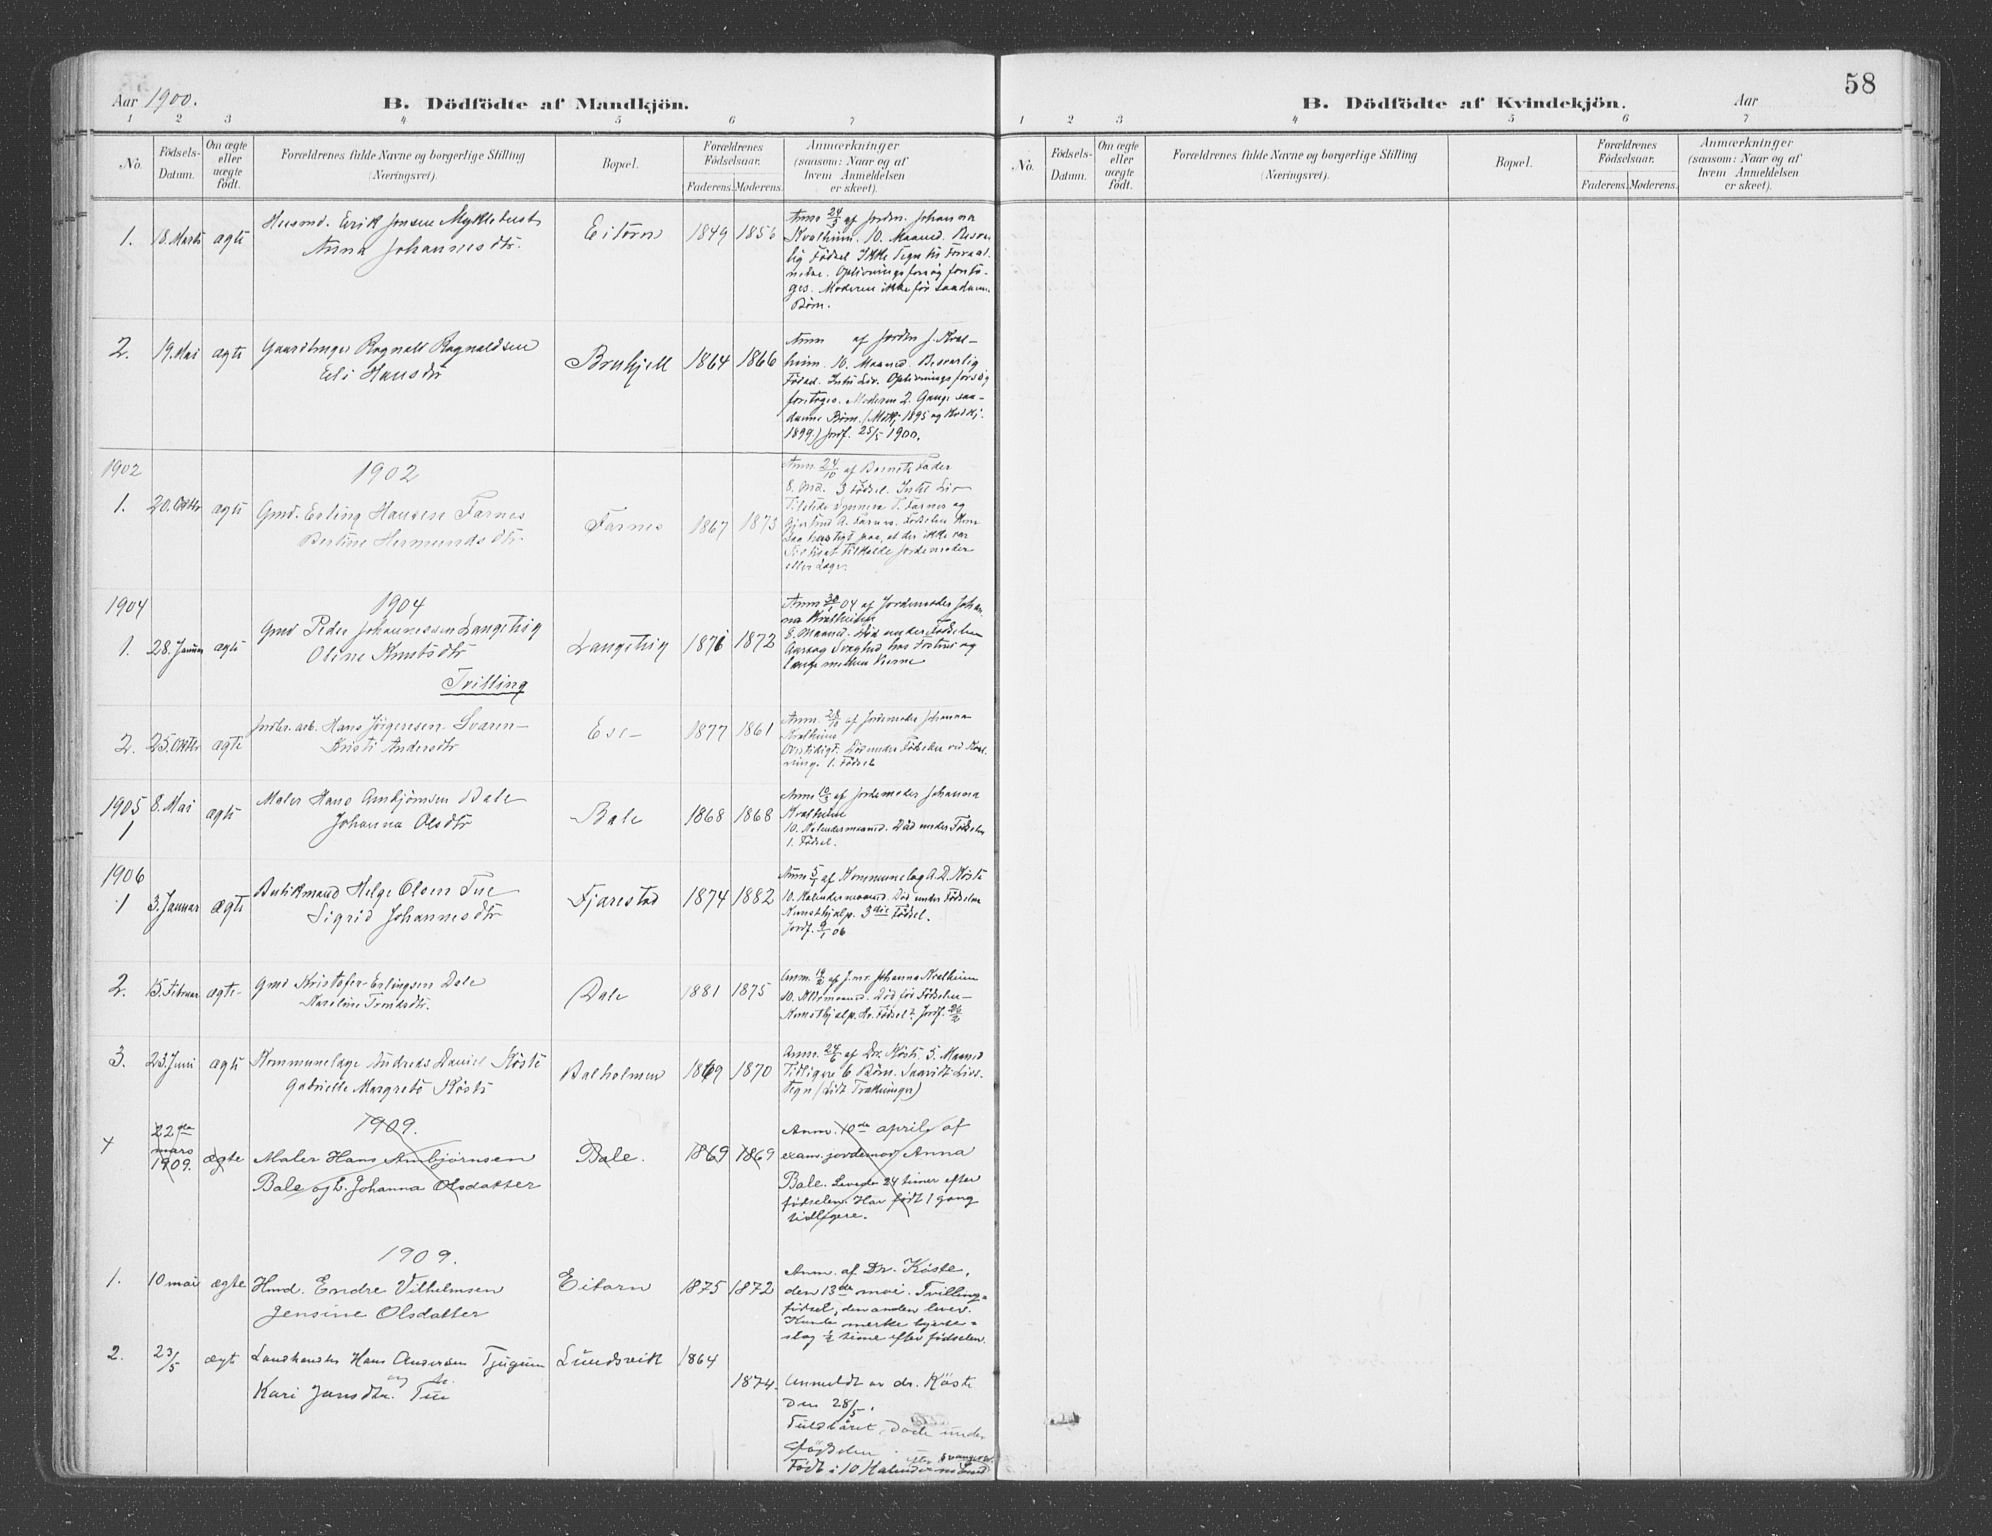 Aar 1900.
B. Dödfödte af Mandkjön.
1 2 3 4 5 6 7
No.
Födsels-
Datum.
Om ægte
eller
uægte
födt.
Forældrenes fulde Navne og borgerlige Stilling
(Næringsvei).
Bopæl.
Forældrenes
Födselsaar.
Faderens. Moderens.
Anmærkninger
(saasom: Naar og af
hvem Anmeldelsen
er skeet).
1. 18. Marts ægte
Husmd. Erik Jensen Myklebust
Anna Johannesdtr.
Eitorn 1849 1856
Anm 24/3 af Jordm. Johanna
Kvalheim. 10. Maaned. Besvær-
lig Födsel Ikke Tegn til Forraad-
nelse. Oplivningsforsög foreto-
ges. Moderen ikke för saadanne
Börn.
2. 19. Mai ægte
Gaardbruger Ragnald Ragnaldsen
Eli Hansdtr
Brukjell 1864 1866
Anm af Jordm J. Kval-
heim. 10. Maaned. Besværlig
Födsel. Intet Liv. Oplivningsforsög
foretoges. Moderen 2. Gange saa-
danne Börn. (Mdkj. 1895 og Kvdkj.
1899.) Jordf. 25/5 1900.
1902
1902
1. 20. Oktbr ægte
Gmd. Erling Hansen Farnes
Bertine Hermundsdtr
Farnes 1867 1873
Anm 24/10 af Barnets Fader
8. Md. 3 Födsel. Intet Liv
Tilstede Synneva T. Farnes og
Gjertrud A. Farnes. Födselen kom
saa hastigt paa, at der ikke var
Tid til at tilkalde Jordemoder
eller Læge.
1904
1904
1. 28. Januar ægte
Gmd Peder Johannessen Langeteig
Oline Knutsdtr
Tvilling
Langeteig 1871 1872
Anm 30/1 04 af Jordemoder Johan-
na Kvalheim
8. Maaned. Död under Födselen
Aarsag Svaghed hos Fosteret og
længe mellem Veerne
2. 25. Oktbr ægte
Hans Jörgensen Svaren
Kristi Andersdtr
Ese 1877 1861
Anm. 28/10 af Jordemoder Johanna
Kvalheim
Död under Födselen
1. Födsel
1905
1
8. Mai ægte
Maler Hans Ambjörnsen Bale
Johanna Olsdtr
Bale 1868 1868
Anm af Jordemoder Johanna
Kvalheim
10. Kalendermaaned. Död under Födselen
1. Födsel.
1906
1 3. Januar ægte
Butikmand Helge Olsen Tue
Sigrid Johannesdtr
Fjærestad 1874 1882
Anm 5/1 af Kommunelæge A. D. Köste
10. Kalendermaaned. Död under Födselen
Kunsthjælp. 3die Födsel.
Jordf. 9/1 06
2. 15. Februar ægte
Gmd Kristofer Erlingsen Dale
Karoline Trondsdtr.
Dale 1881 1875
Anm. 19/2 af J.m. Johanna Kvalheim
10. Kldmaaned. Död för Födselen
Kunsthjælp. Jordf. 26/2
3. 23. Juni ægte
Kommunelæge Andreas Daniel Köste
Gabrielle Margrete Köste
Balholmen 1869 1870
Anm. 24/6 af Dr. Köste. 5. Maaned
Tidligere 6 Börn. Saavidt Livs-
tegn (Lidt Trækninger)
4
22de
mars
1909.
ægte
1909.
Maler Hans Ambjørnsen
Bale og h. Johanna Olsdatter
Bale. 1869 1869
Anm. 10de april af
exam. jordemor Anna
Bale. Levede 24 timer efter
fødselen. Har født 1 gang
tidligere.
1909.
1. 10 mai ægte
Hmd. Endre Vilhelmsen
Jensine Olsdatter
Eitorn 1875 1872
Anm. af Dr. Köste,
den 13de mai. Tvilling-
fødsel, den anden lever.
Kunde merke hjerte-
slag ½ time efter fødselen.
2. 23/5 ægt
Landhandler Hans Andersen Tjugum
og
Kari Jansdtr. Tue
Lundsvik 1864
1874.
Anmeldt av dr. Köste
den 28/5.
Fuldbåret, døde under
fødselen.
Født i 10 Kalendermåned
58
B. Dödfödte af Kvindekjön.
Aar
1 2 3 4 5 6 7
No.
Födsels-
Datum.
Om ægte
eller
uægte
födt.
Forældrenes fulde Navne og borgerlige Stilling
(Næringsvei).
Bopæl.
Forældrenes
Födselsaar.
Faderens. Moderens.
Anmærkninger
(saasom: Naar og af
hvem Anmeldelsen
er skeet).